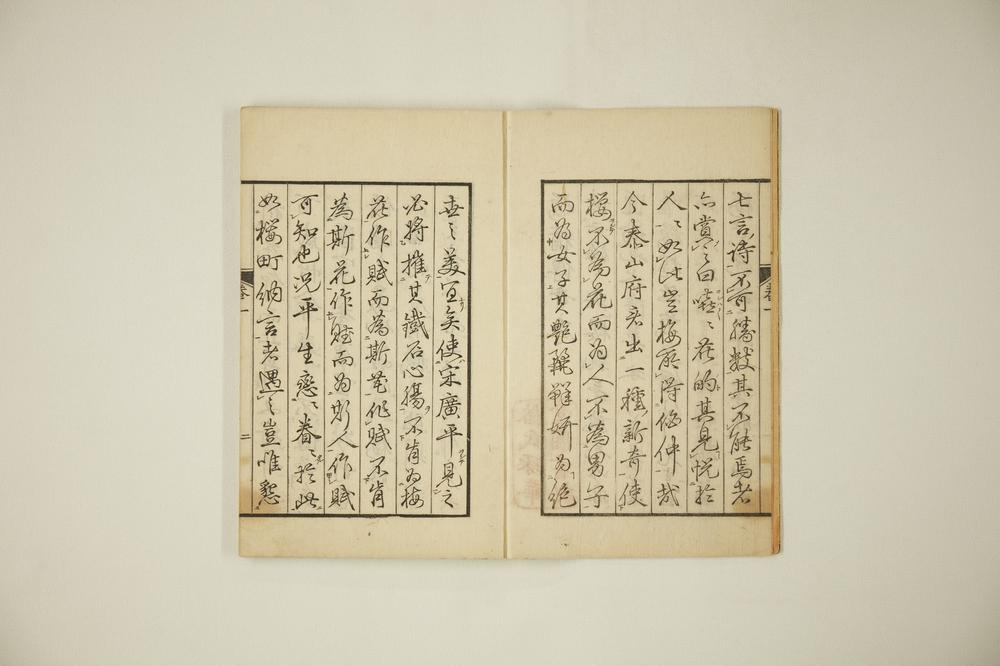 七言詩不可勝數其不能焉者
亦賞之曰啞々花的其見悅於
人々如此豈梅所得伯仲哉
今泰山府君出一種新奇使
櫻不為花而為人不為男子
而為女子其艷麗鮮妍為絕
世之美宜矣使宋廣平見之
必將摧其鐵石心腸不肯為梅
花作賦而為斯花作賦不肯
為斯花作賦而為斯人作賦
可知也況平生戀々眷々於此
如櫻町納言者遇之豈唯懇
卷一
卷一
二